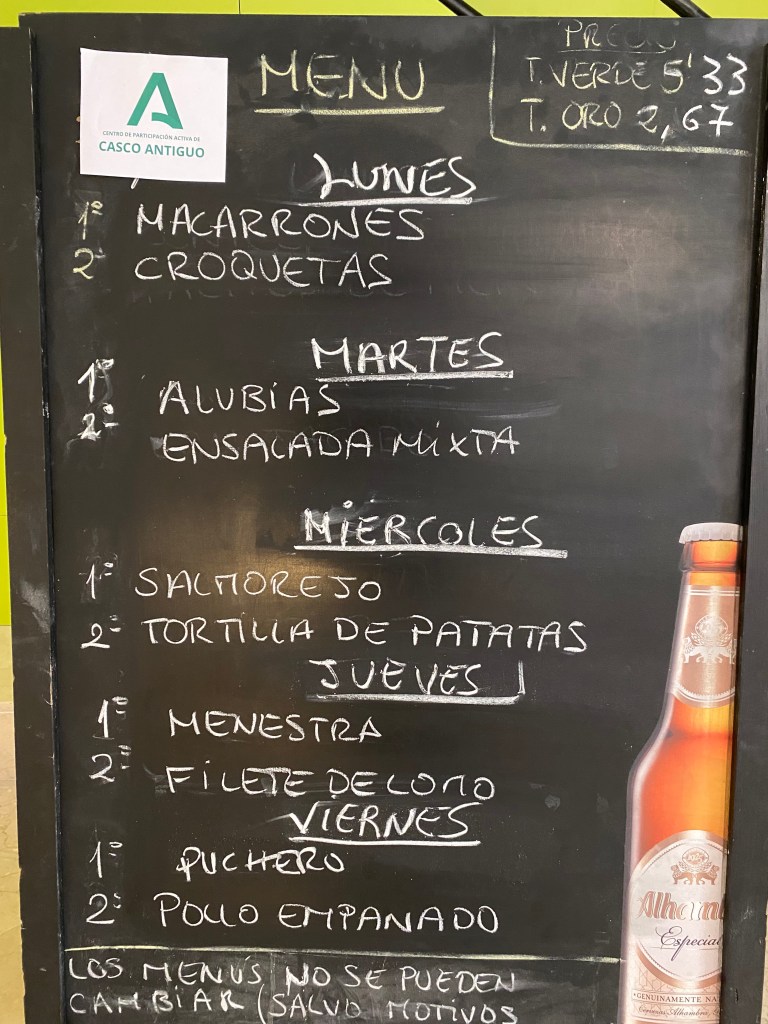 MENU
PRECIO
T. VERDE 5'33
T. ORO 2,67
A
CENTRO DE PARTICIPACIÓN ACTIVA DE
CASCO ANTIGUO
LUNES
1º MACARRONES
2º CROQUETAS
MARTES
1º ALUBIAS
2º ENSALADA MIXTA
MIERCOLES
1º SALMOREJO
2º TORTILLA DE PATATAS
JUEVES
1º MENESTRA
2º FILETE DE LOMO
VIERNES
1º PUCHERO
2º POLLO EMPANADO
Alham
Especial
GENUINAMENTE NA
LOS MENUS NO SE PUEDEN
CAMBIAR (SALVO MOTIVOS